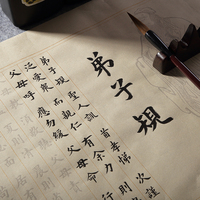 弟子規
弟子規 聖人訓 首孝悌 次謹
泛愛衆 而親仁 有余力 則
父母呼 應勿緩 父母令 行